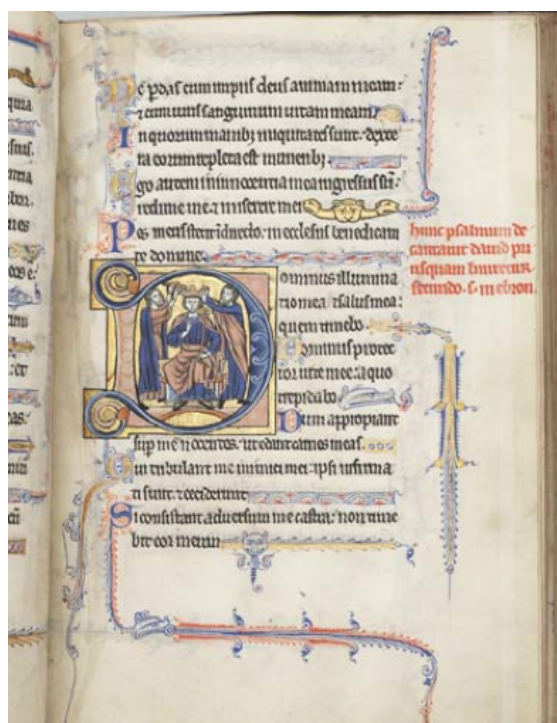 Ne pdas cum impiis deus animam meam:
⁊ cum uiris sanguinum uitam meam.
In quorum manib; iniquitates sunt: dexte
ra eorum repleta est munerib;
Ego autem in innocentia mea ingressus sū:
redime me ⁊ miserere mei
Pes meus stetit in directo: in ecclesiis benedicam
te domine.
Dominus illumina
tio mea ⁊ salus mea:
quem timebo
Dominus protec
tor uite mee: a quo
trepidabo
Dum appropiant
sup me nocentes: ut edant carnes meas
Qui tribulant me inimici mei: ipsi infirma
ti sunt ⁊ ceciderunt
Si consistant aduersum me castra: non time
bit cor meum
hunc psalmum de
cantauit dauid pri
usquam liniretur
secundo. s. in ebron.